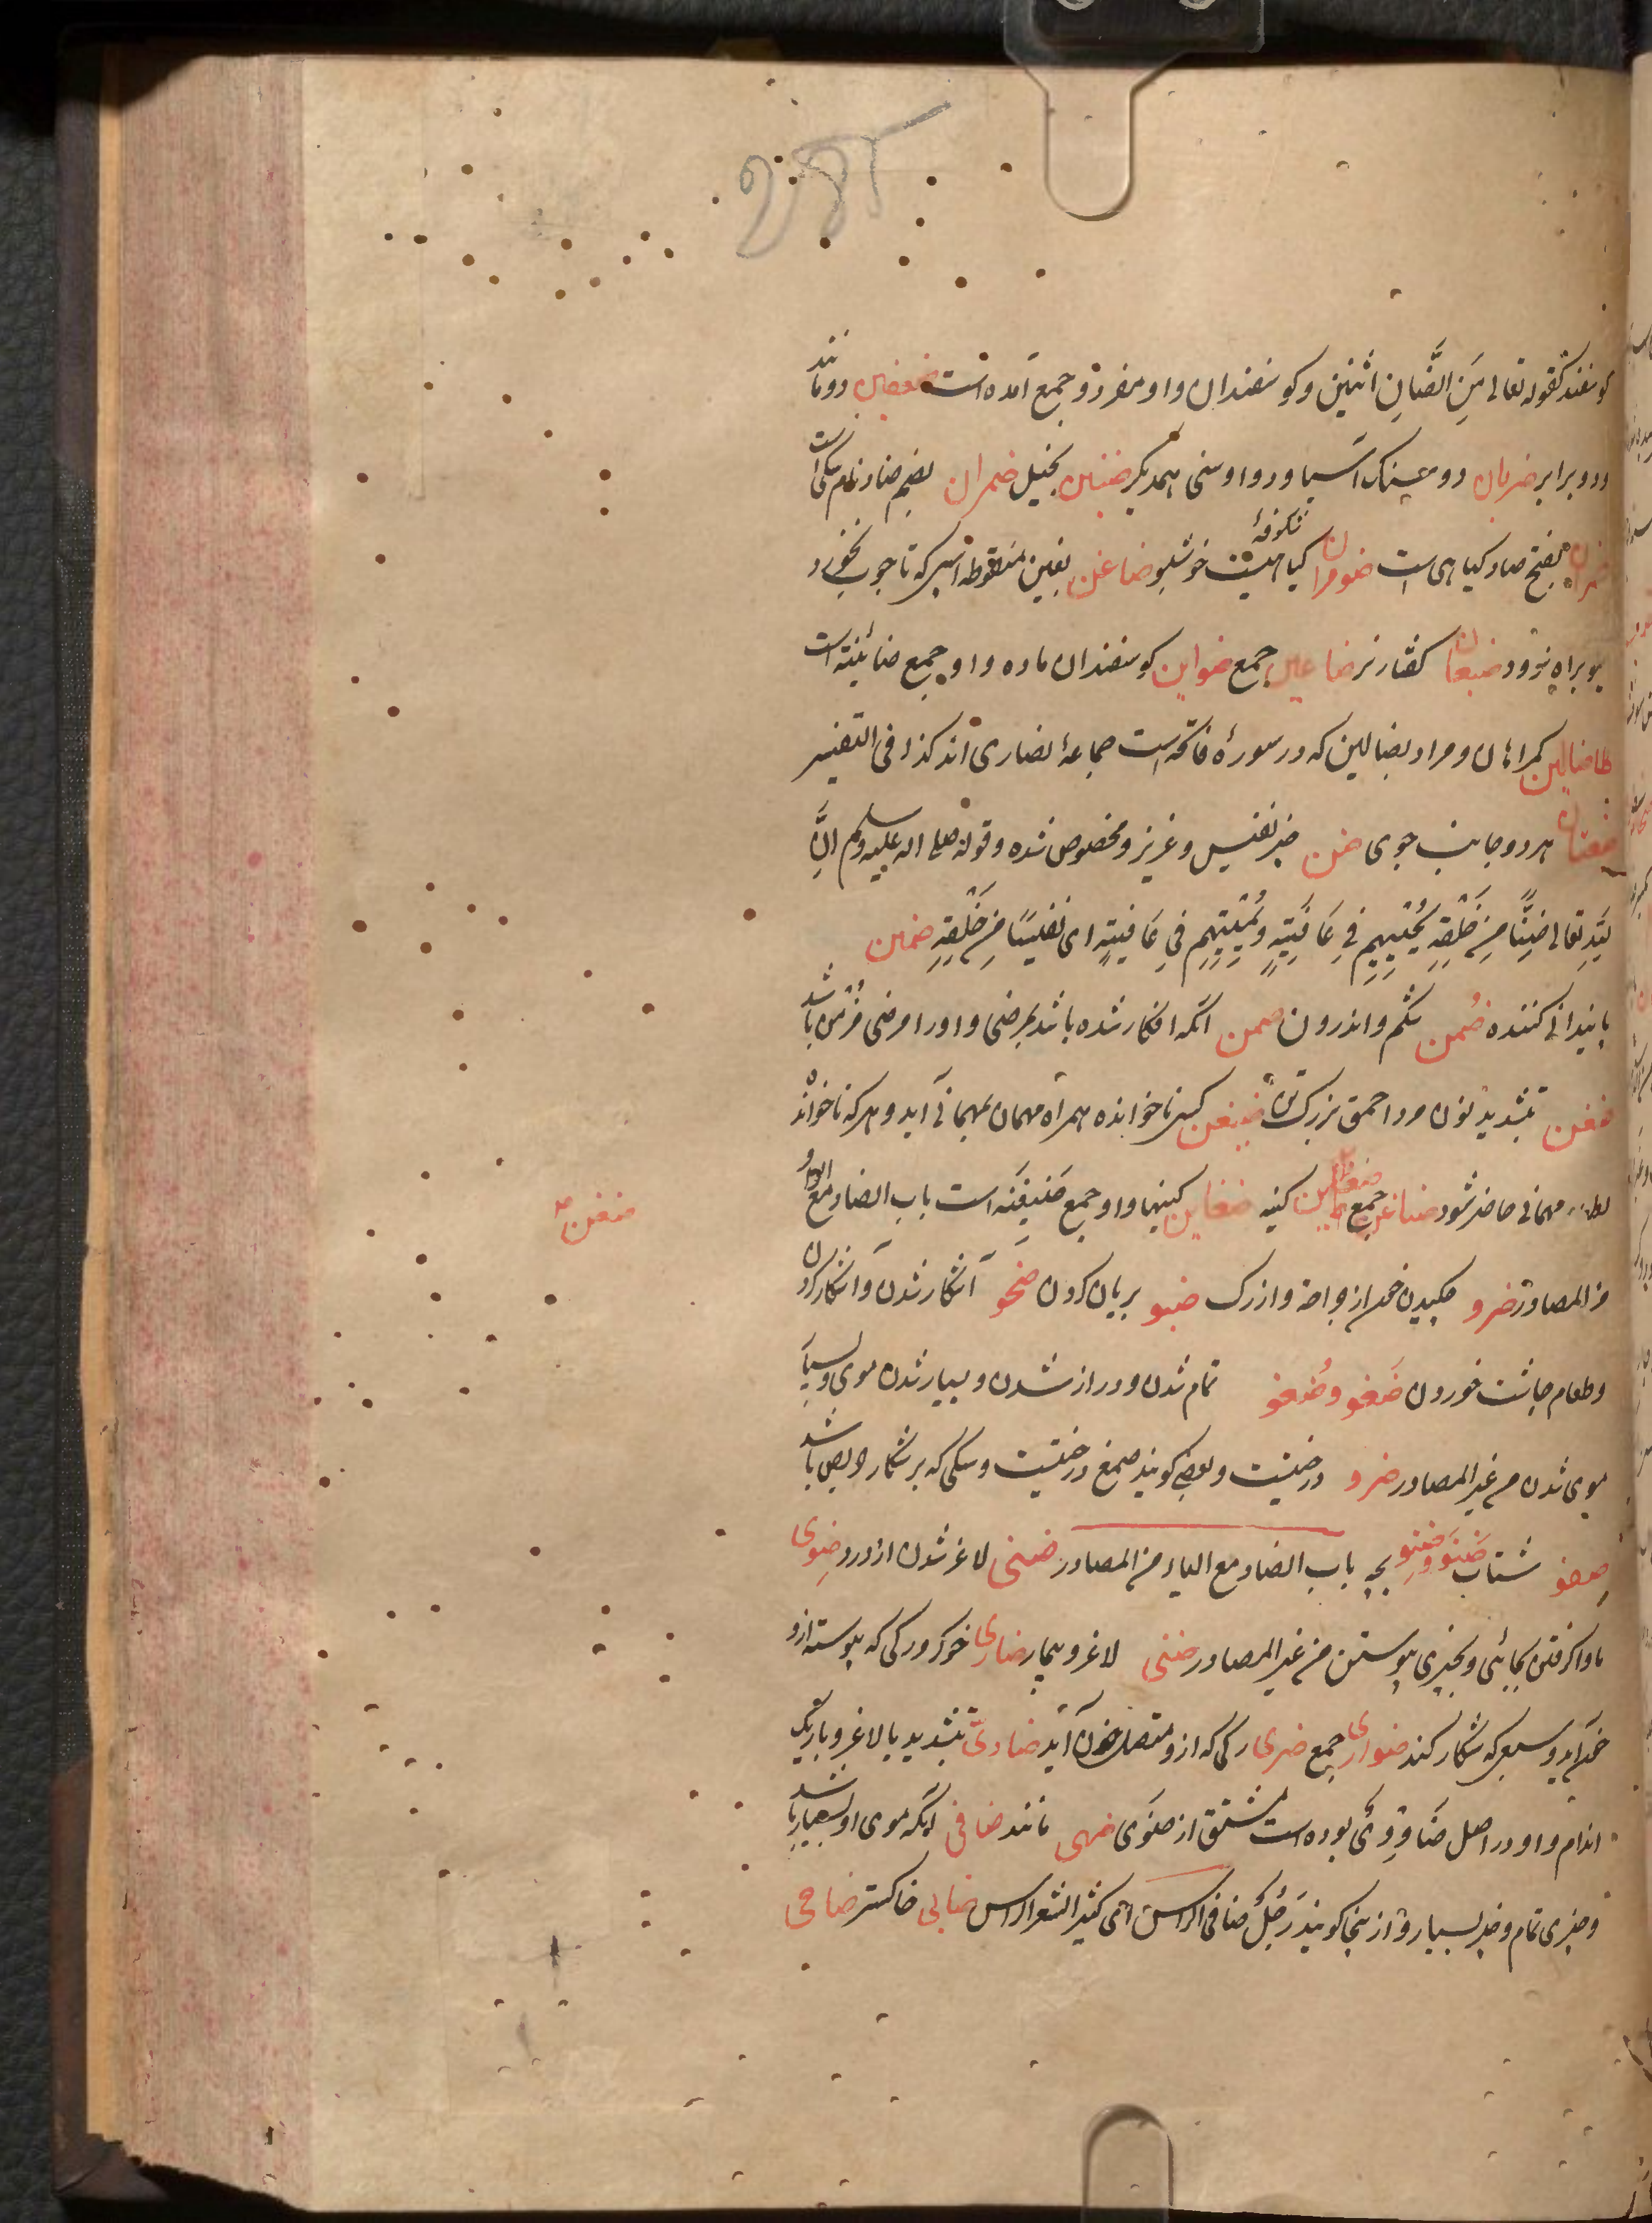 گوسفند کقوله تعالی مِنَ الضَّأنِ اثنین و گوسفندان و او مفرد و جمع آمده است ضعفین دو مانند
و دو برابر ضربان دو سنک آسیا و دو اوسنی همدیکر ضنین بخیل ضمران بضم ضاد نام سکی است
ضمران بفتح ضاد کیاهی است ضومران کیاهیست خوشبو ضاغن بغین منقوطه اسپی که تا چوب نخورد
براه نرود ضبعان کفتار نر ضباعین جمع ضواین کوسفندان ماده و او جمع ضائنة است
ضالین کمراهان و مراد بضالین که در سورهٔ فاتحه است جماعهٔ نصاری اند کذا فی التفسیر
ضفتان هر دو جانب جوی ضن چیز نفیس و عزیز و مخصوص شده و قوله صلی الله علیه وسلم انَّ
لله تعالی ضنّاً من خلقه یحییهم فی عافیته ویمیتهم فی عافیته ای نفیساً من خلقه ضمین
پایندانی کننده ضمن شکم و اندرون ضمن آنکه افکار شده باشد بمرضی و او را مرضی مزمن باشد
ضفن بتشدید نون مرد احمق بزرک تن ضیفن کسی ناخوانده همراه مهمان بمهمانی آید و هر که ناخوانده
مهمانی حاضر شود ضیافن جمع کینه ضغاین کینها و او جمع ضغینه است باب الضاد مع الواو
من المصادر ضرو چکیدن خون از جراحة و از رک ضبو بریان کردن ضحو آشکار شدن و آشکار کردن
و طعام چاشت خوردن ضفو و ضفو تمام شدن و دراز شدن و بسیار شدن موی و بسیار
موی شدن من غیر المصادر ضرو درختیست و بعضی کویند صمغ درختیست و سکی که بر شکار حریص باشد
شتاب ضنو و ضنو بچه باب الضاد مع الیاء من المصادر ضنی لاغر شدن از درد ضوی
ماوا کرفتن بجائی و بچیزی پیوستن من غیر المصادر ضنی لاغر و بیمار ضاری خوکر و رکی که پیوسته ازو
خون آید و سبعی که شکار کند ضواری جمع ضری رکی که ازو متصل خون آید ضاویّ بتشدید یا لاغر و باریک
اندام و او در اصل ضاووی بوده است مشتق از ضوی ضهی مانند ضافی آنکه موی او بسیار باشد
و چیزی تمام و چیز بسیار و از ینجا کویند رجلٌ ضافی الراس ای کثیر الشعر الراس ضابی خاکستر ضاحی
ضفن